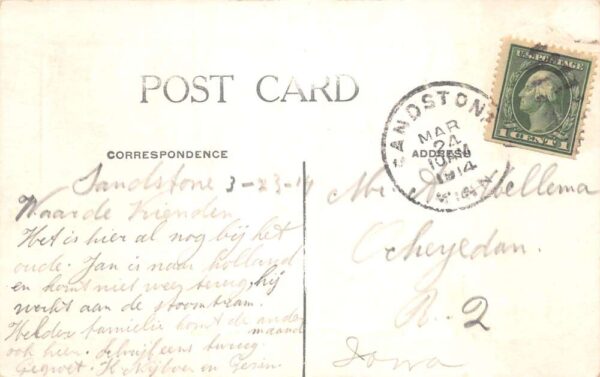 POST CARD
U.S. POSTAGE
1 CENT 1
SANDSTONE
MAR
24
1914
MINN
CORRESPONDENCE
ADDRESS
Sandstone 3-23-14
Waarde Vrienden
Het is hier al nog bij het
oude. Jan is naar holland
en komt niet weg terug, hij
werkt aan de stoomtram.
familie komt de ande
maand
ook hier. Schrijf eens terug.
Gegroet. H. en Gezin.
Mr.
Ocheyedan.
R. 2
Iowa